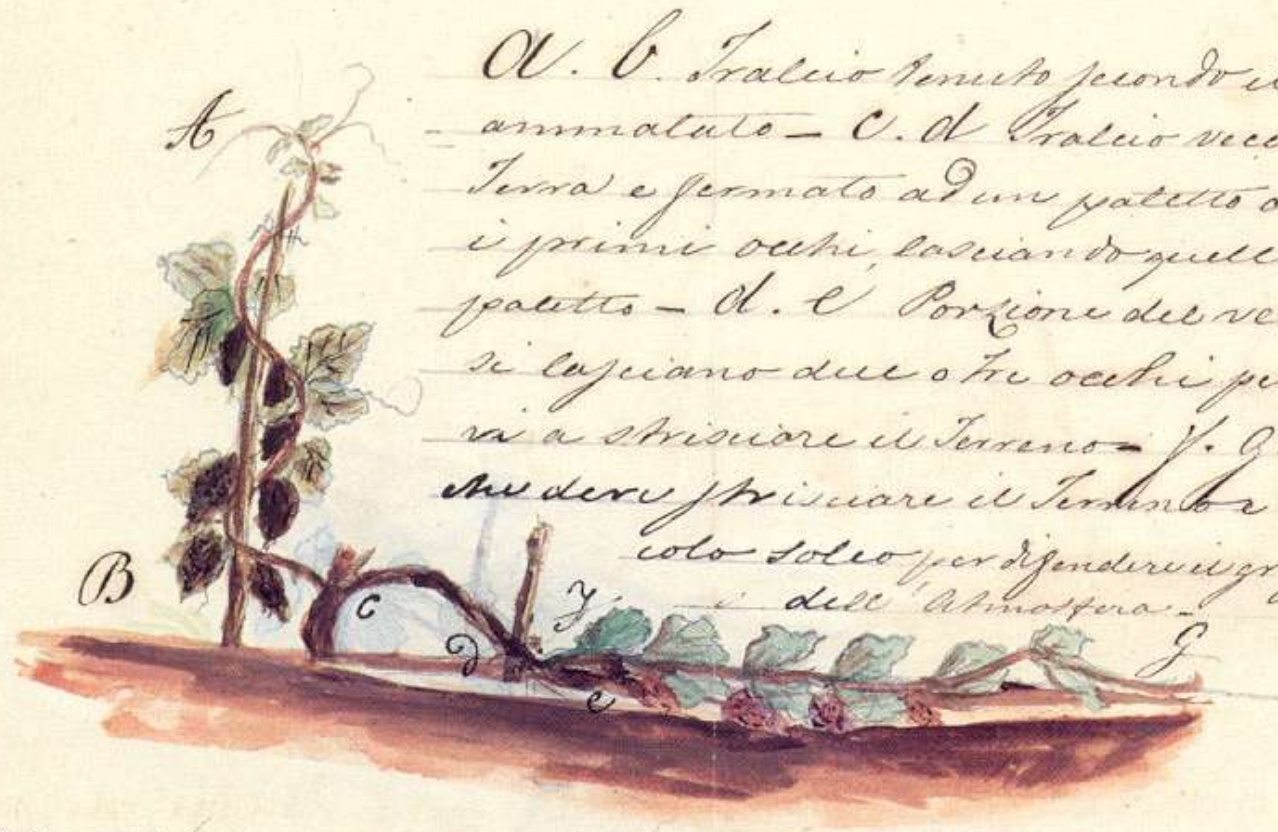 a. b. Tralcio tenuto secondo il
ammalato – C. d Tralcio vecc
Terra e fermato ad un paletto a
i primi occhi, lasciando quell
paletto – d. e Porzione del ve
si lasciano due o tre occhi pe
va a strisciare il Terreno – f. G
che deve strisciare il Terreno
colo solco per difendere il gr
dell' Atmosfera –
A
B
C
D
e
F
G